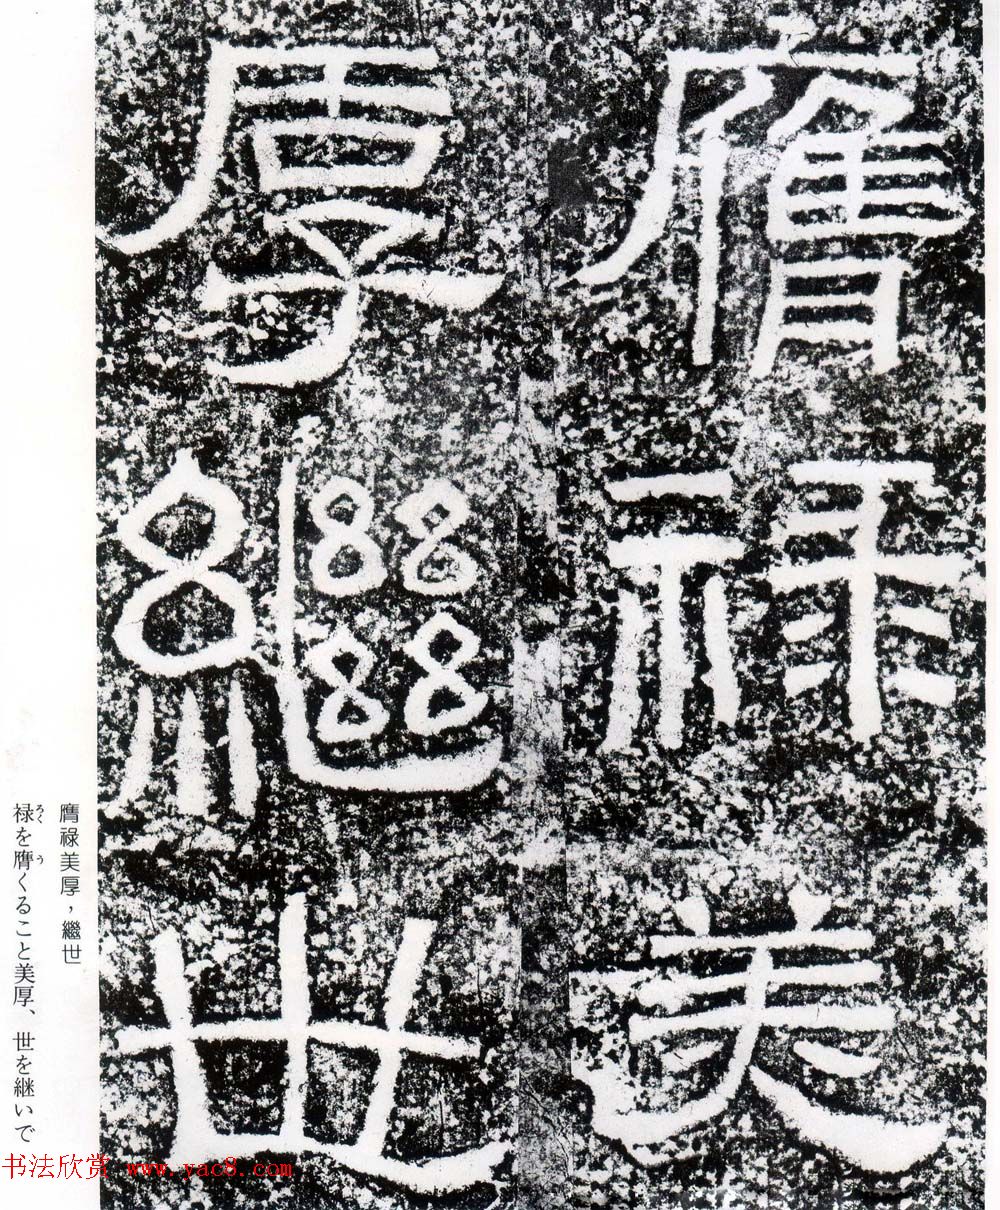 膺祿美
厚繼世
膺祿美厚，繼世
禄を膺くること美厚、世を継いで
ろく
う
书法欣赏 www.yac8.com